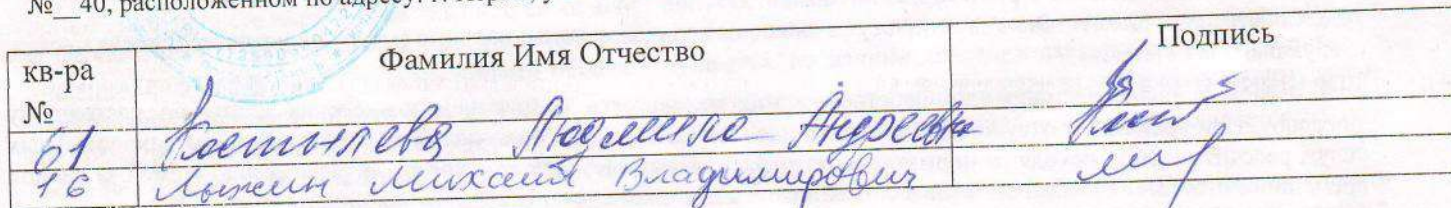 №__40, расположенном по адресу: г.
кв-ра № Фамилия Имя Отчество Подпись
61 Костылева Людмила Андреевна
16 Лыжин Михаил Владимирович